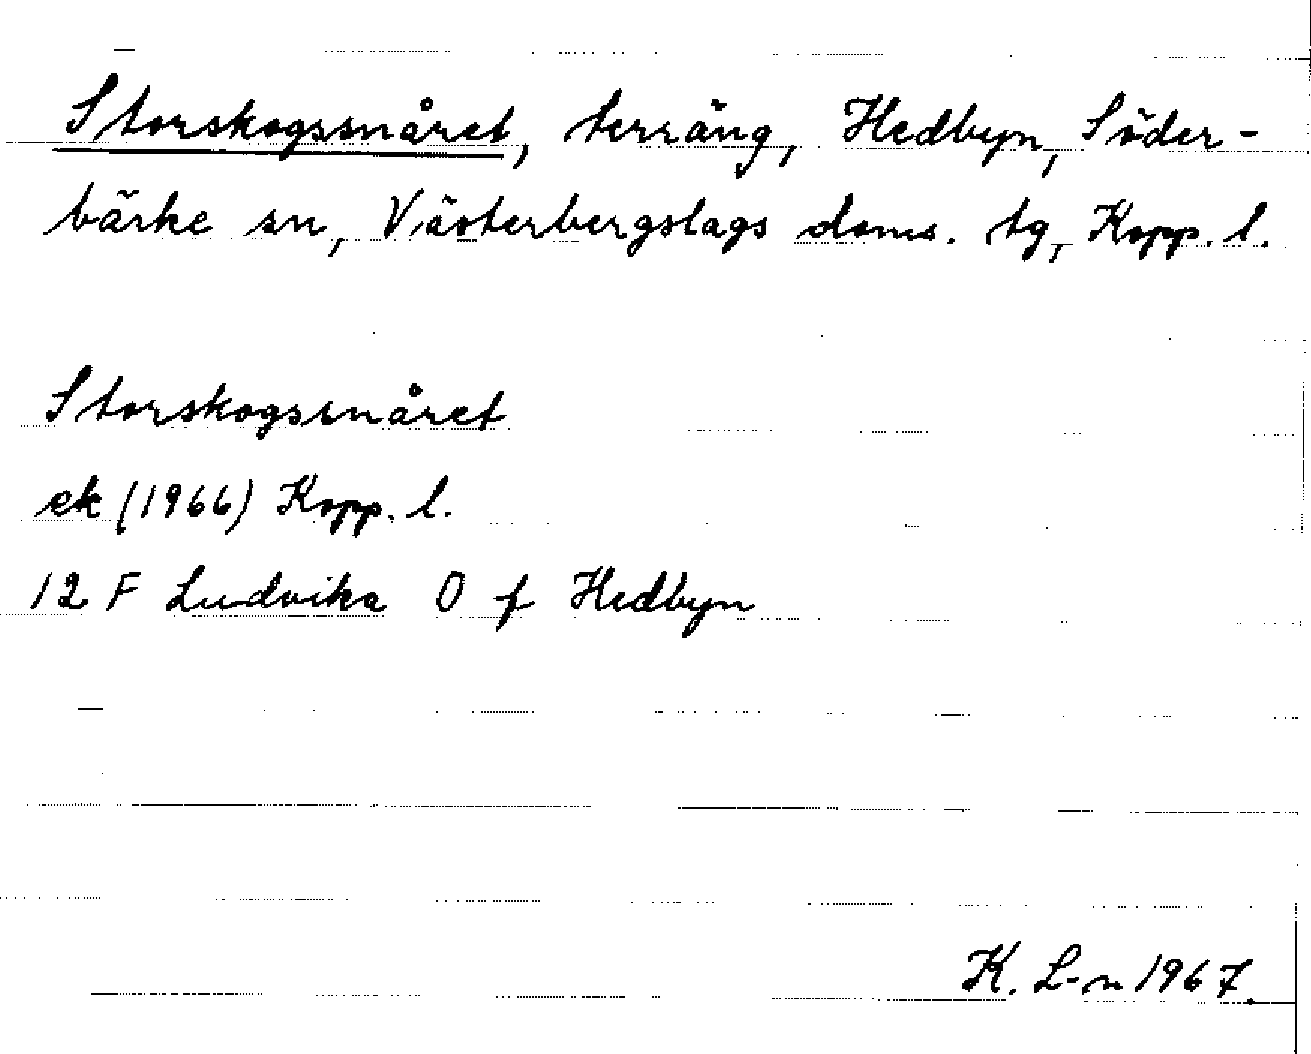 Storskogssnåret, terräng, Hedbyn, Söder-
bärke sn, Västerbergslags doms. tg, Kopp. l.
Storskogssnåret
ek (1966) Kopp. l.
12 F Ludvika O f Hedbyn
K. L-n 1967.